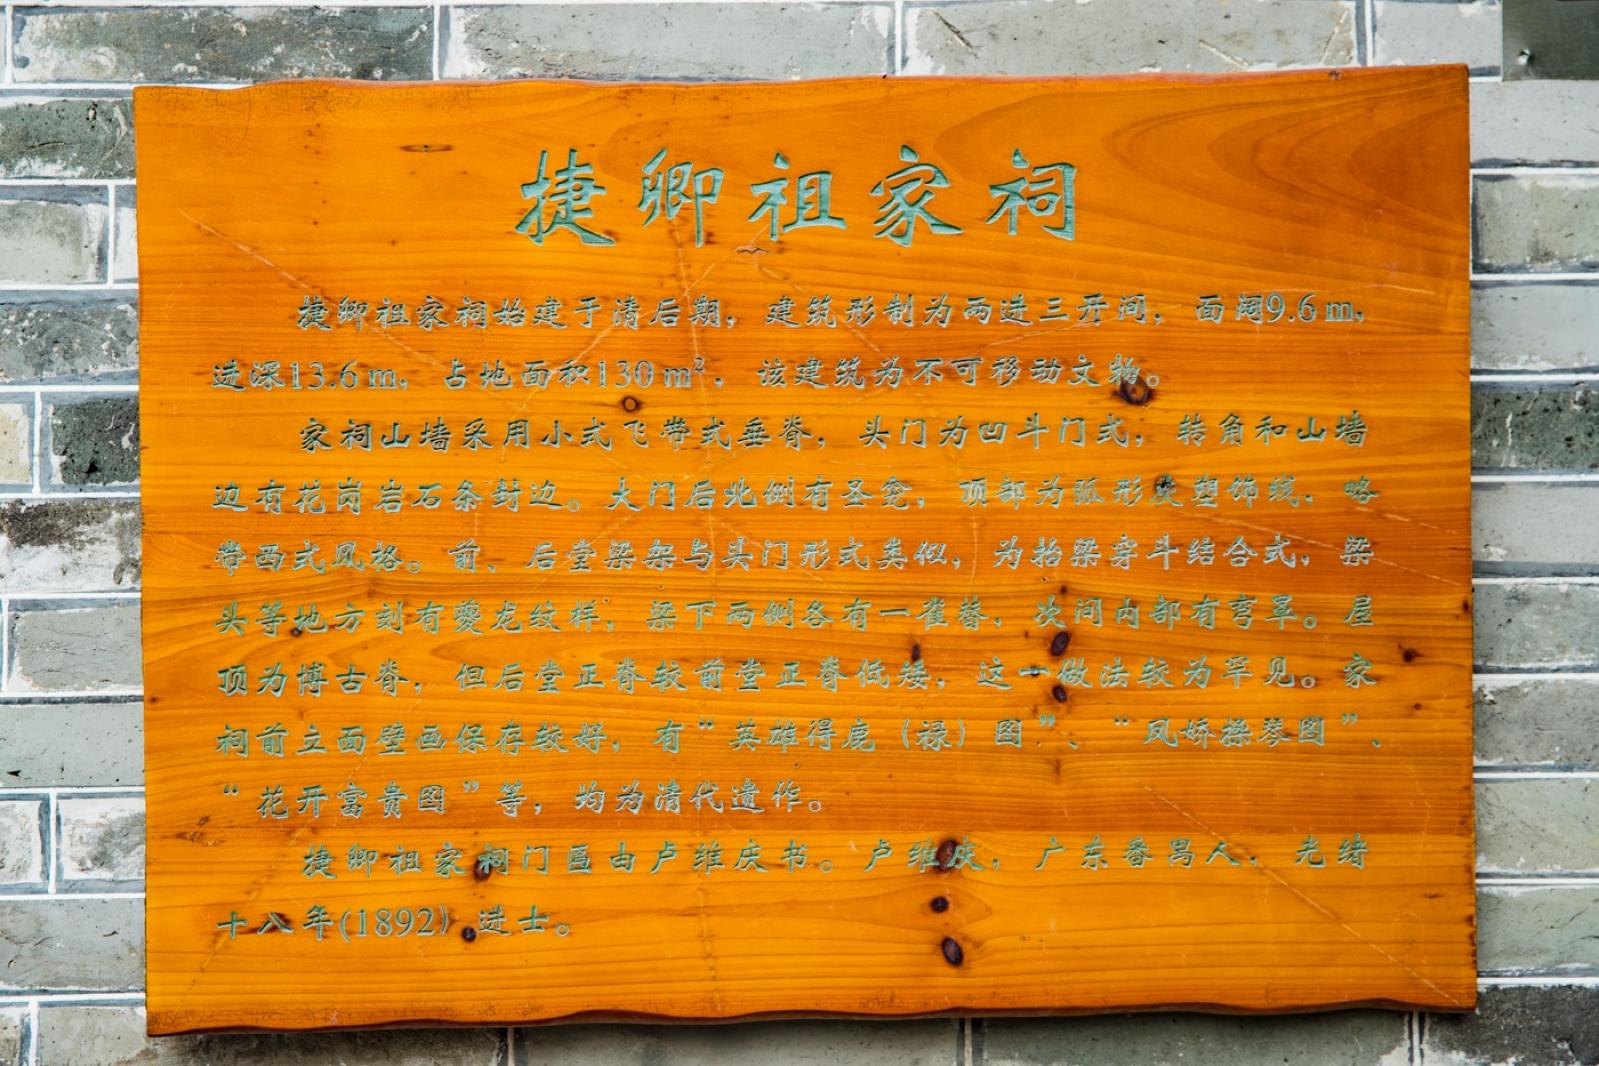 捷卿祖家祠
捷卿祖家祠始建于清后期，建筑形制为两进三开间，面阔9.6 m，
进深13.6 m，占地面积130 m²，该建筑为不可移动文物。
家祠山墙采用小式飞带式垂脊，头门为凹斗门式，转角和山墙
边有花岗岩石条封边。大门后北侧有圣龛，顶部为弧形灰塑饰线，略
带西式风格。前、后堂梁架与头门形式类似，为抬梁穿斗结合式，梁
头等地方刻有夔龙纹样，梁下两侧各有一雀替，次间内部有弯罩。屋
顶为博古脊，但后堂正脊较前堂正脊低矮，这一做法较为罕见。家
祠前立面壁画保存较好，有“英雄得鹿（禄）图”、“凤娇操琴图”、
“花开富贵图”等，均为清代遗作。
捷卿祖家祠门匾由卢维庆书。卢维庆，广东番禺人，光绪
十八年(1892）进士。